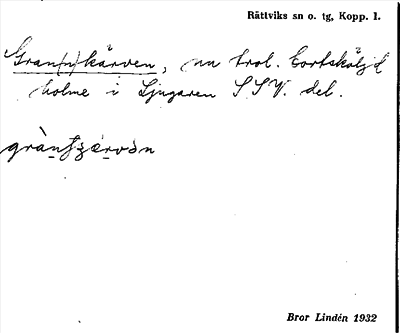 Rättviks sn o. tg, Kopp. l.
Gran(n)kärven, nu trol. bortsköljd
holme i Ljugaren SSV. del.
Bror Lindén 1932